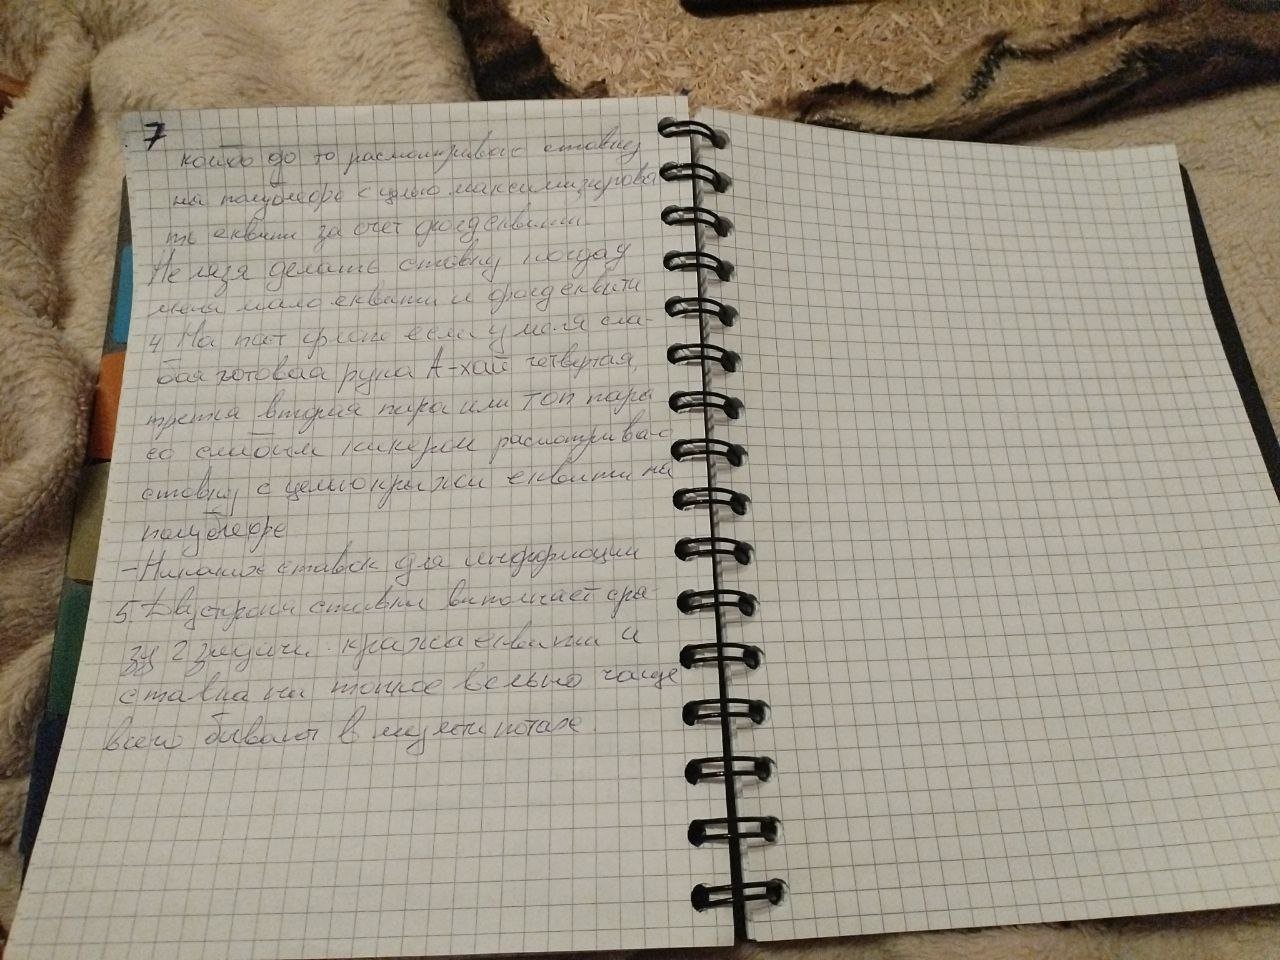 7
кой то до то расматриваю ставку
на полублефе с целью максимизирова
ть еквити за счет фолдеквити.
Не льзя делать ставку когда у
меня мало еквити и фолдеквити
4 На пот флопе если у меня сла-
бая готовая рука А-хай четвертая,
третья вторая пара или топ пара
со слабым кикером расматрива-ю
ставку с целью кражи еквити на
полублефе
- Никаких ставок для информации
5. Двустроня ставка выполняет сра-
зу 2 задачи. кража еквити и
ставка на тонкое велью чаще
всего бывает в мультипотах.